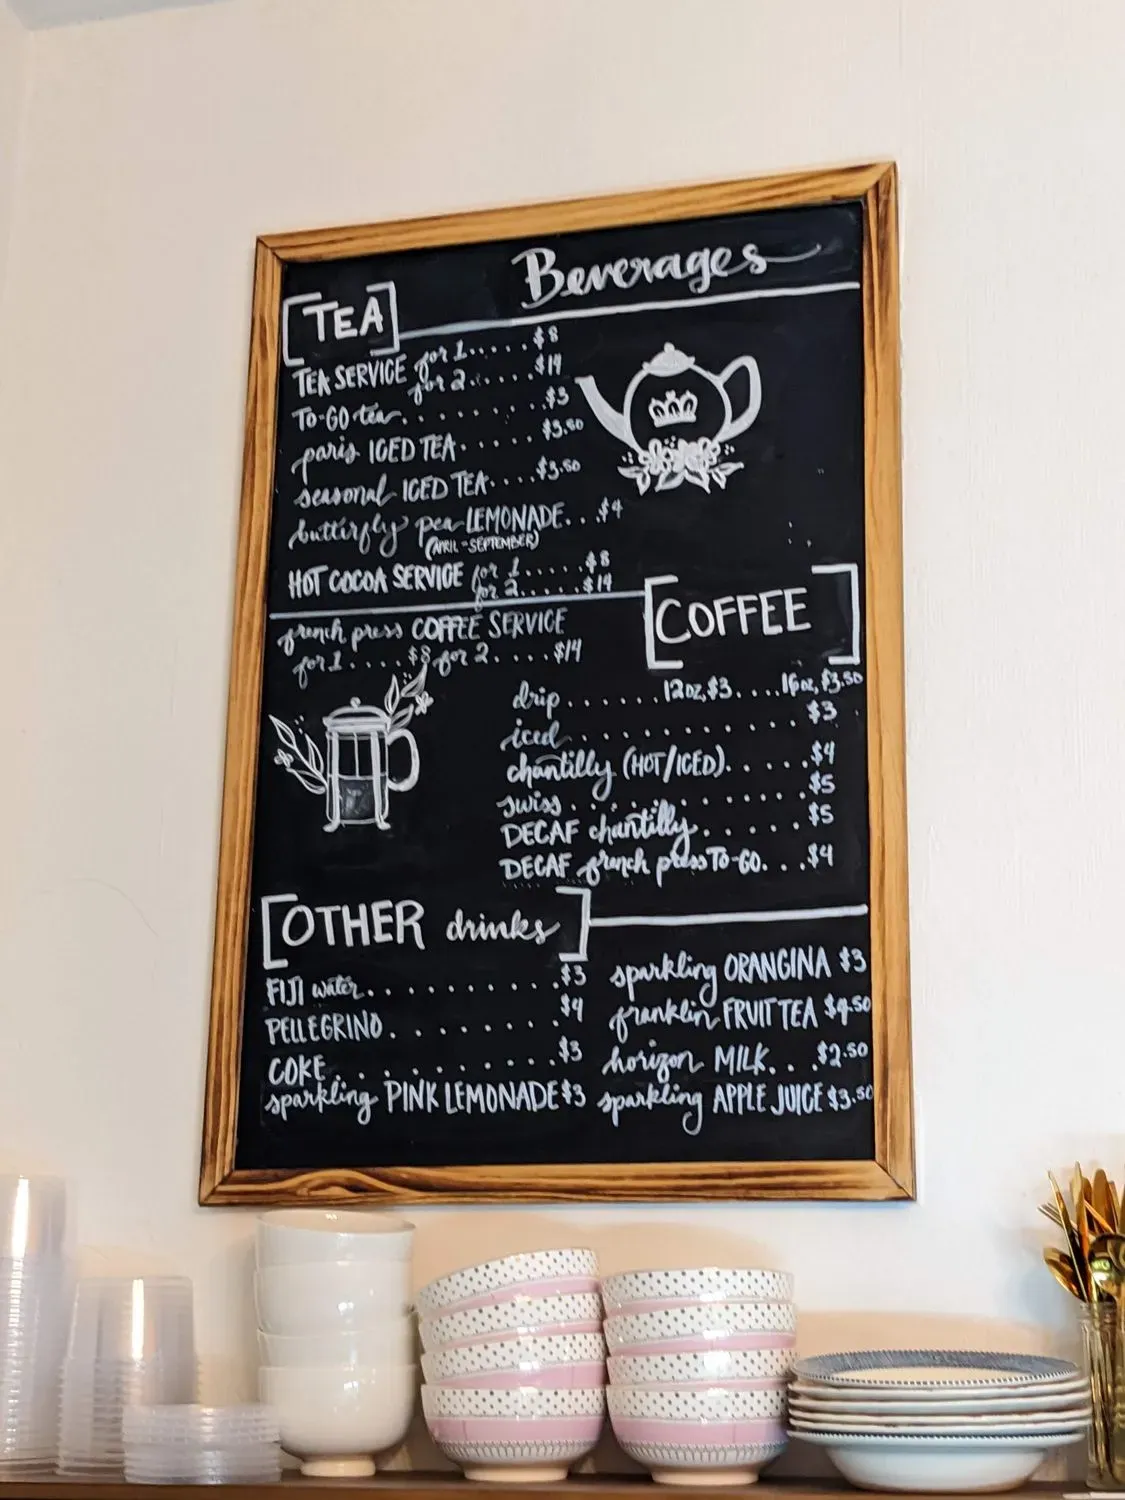 Beverages
TEA
TEA SERVICE for 1......$8
for 2......$14
TO-GO tea........$3
paris ICED TEA......$3.50
seasonal ICED TEA....$3.50
butterfly pea LEMONADE...$4
(APRIL - SEPTEMBER)
HOT COCOA SERVICE for 1.....$8
for 2.....$14
COFFEE
french press COFFEE SERVICE
for 1....$8 for 2....$14
drip......12oz, $3....16oz, $3.50
iced..........$3
chantilly (HOT/ICED).....$4
swiss..........$5
DECAF chantilly.....$5
DECAF french press TO-GO...$4
OTHER drinks
FIJI water..........$3
PELLEGRINO.........$4
COKE..........$3
sparkling PINK LEMONADE $3
sparkling ORANGINA $3
franklin FRUIT TEA $4.50
horizon MILK...$2.50
sparkling APPLE JUICE $3.50